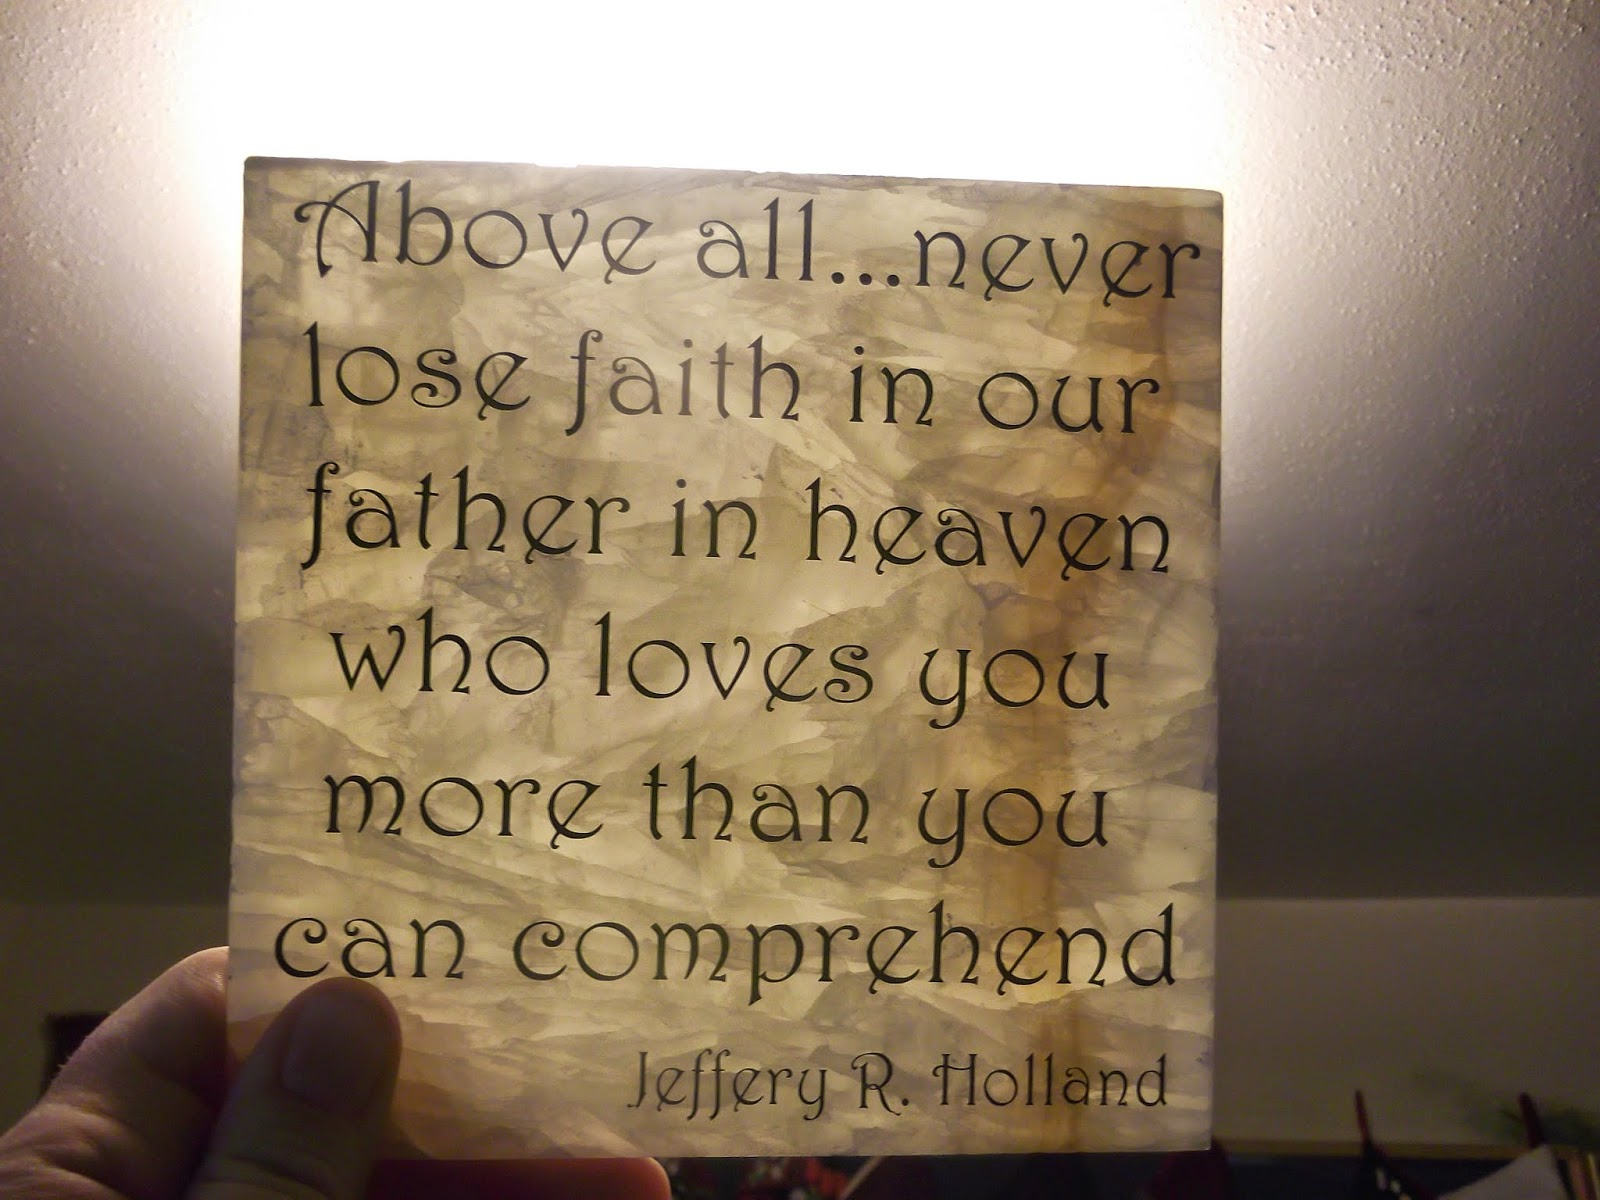 Above all...never
lose faith in our
father in heaven
who loves you
more than you
can comprehend
Jeffery R. Holland